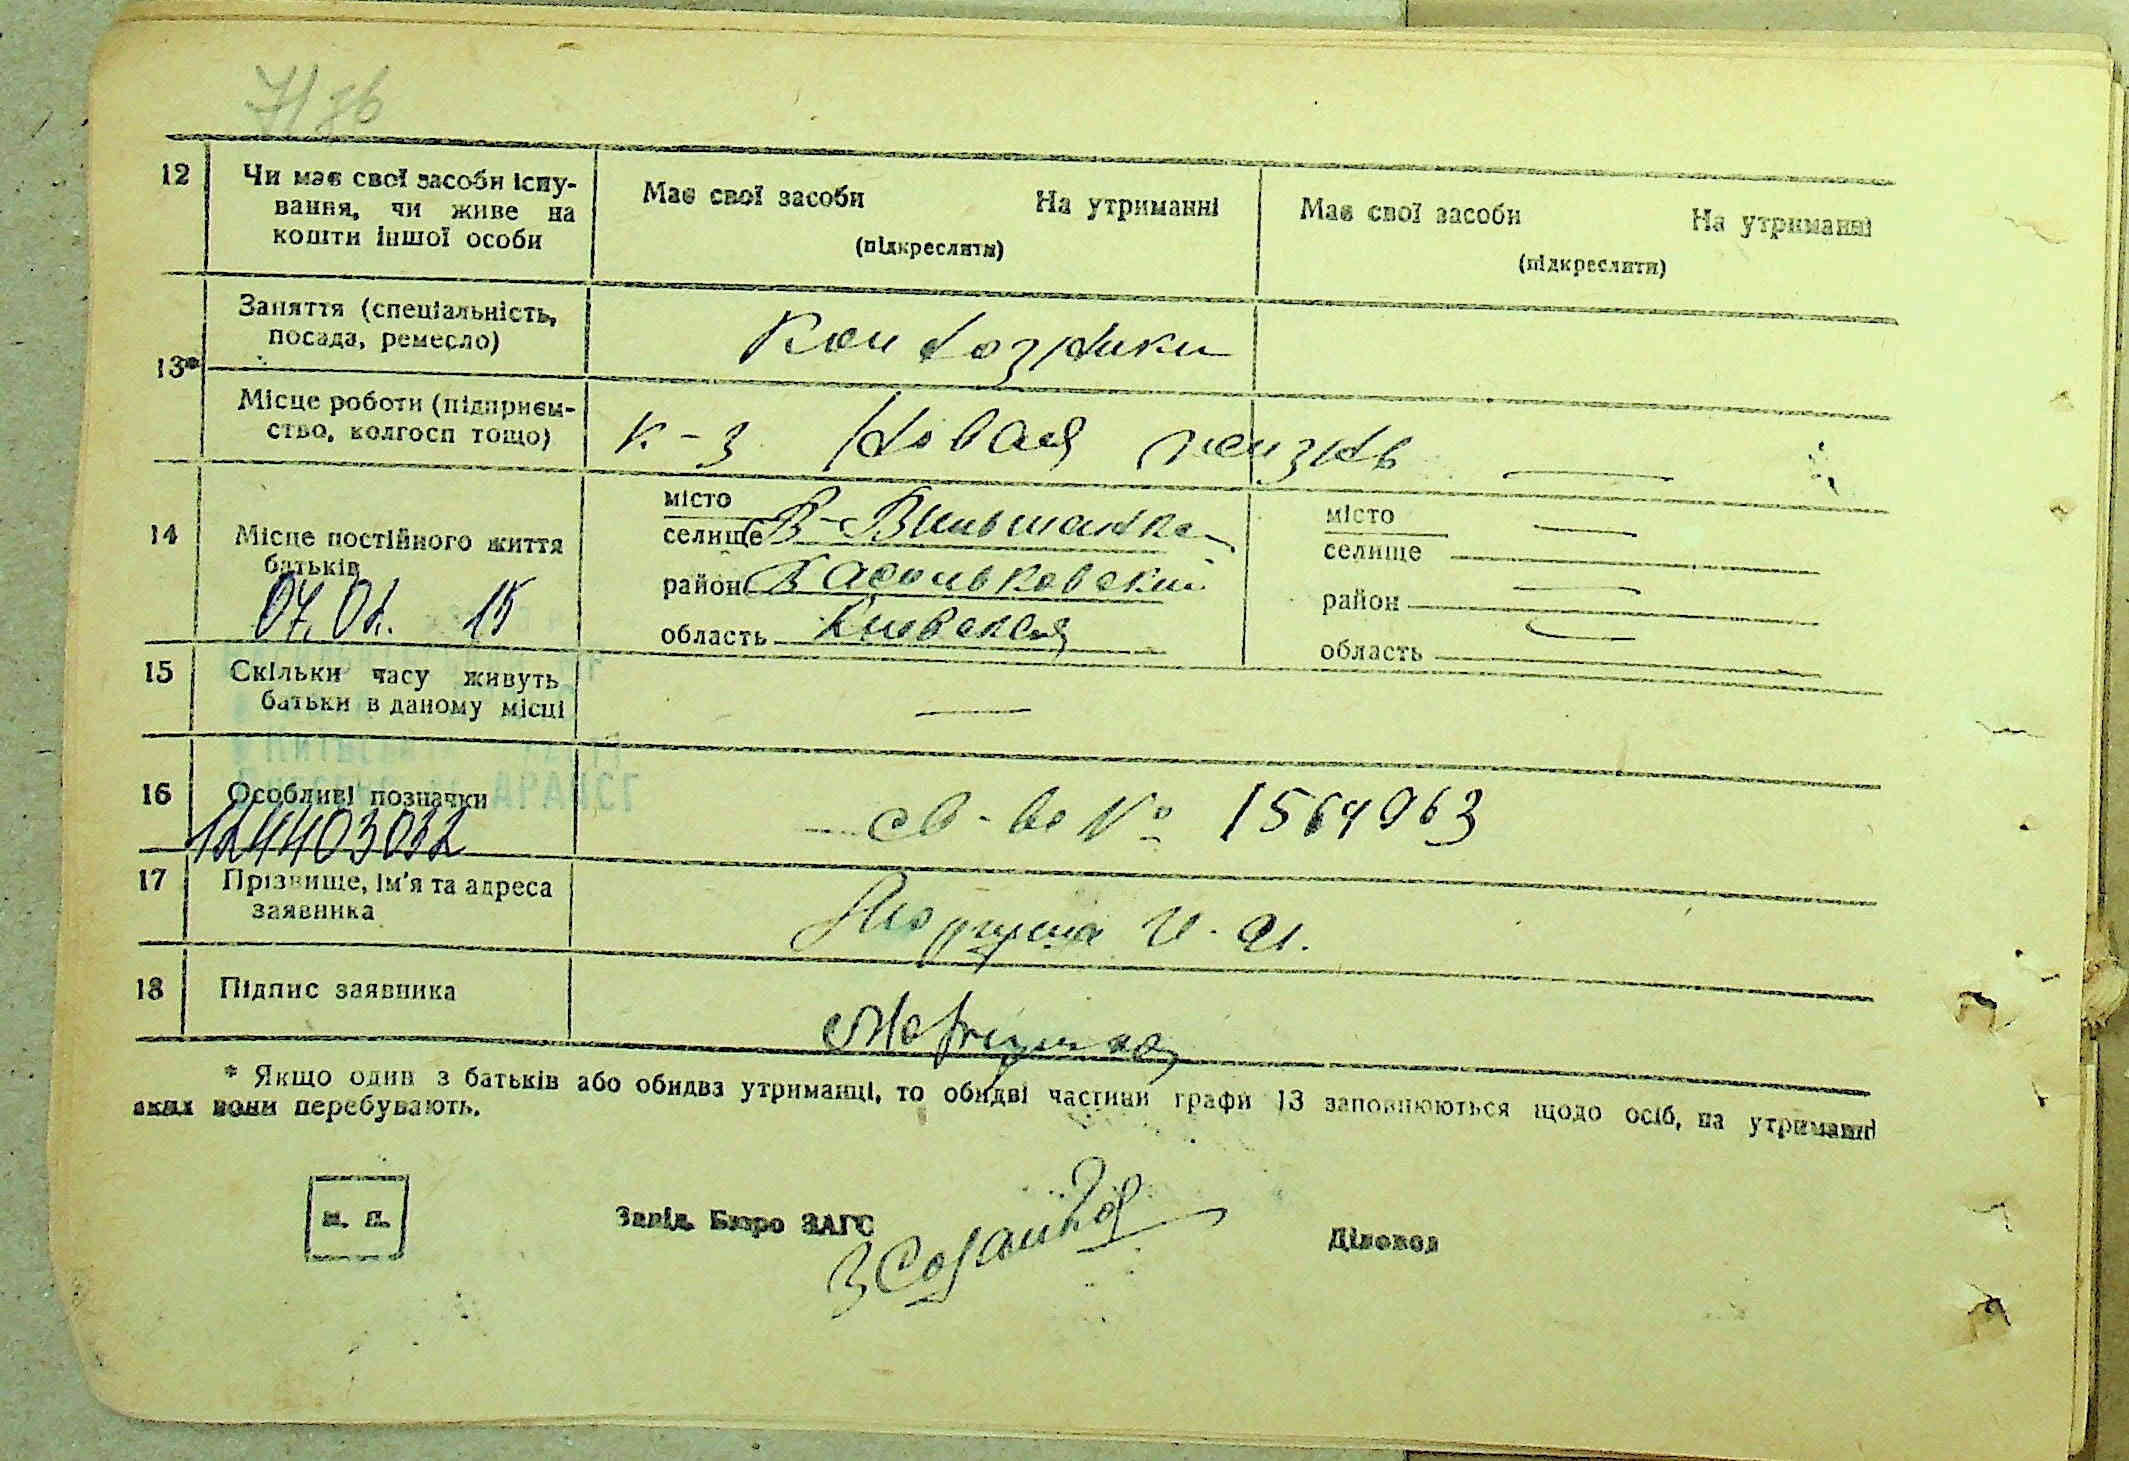 71 зв
12
Чи має свої засоби існу-
вання, чи живе на
кошти іншої особи
Має свої засоби На утриманні
(підкреслити)
Має свої засоби На утриманні
(підкреслити)
13*
Заняття (спеціальність,
посада, ремесло)
Колхозники
Місце роботи (підприєм-
ство, колгосп тощо)
к-з Новая жизнь —
14
Місце постійного життя
батьків
07.01. 15
місто
селище В-Вильшанка
район
область Киевская
місто —
селище
район —
область —
15
Скільки часу живуть
батьки в даному місці
—
16
Особливі позначки
АРАЦСГ
124403032
св-во № 1564963
17
Прізвище, ім'я та адреса
заявника
И.
18
Підпис заявника
* Якщо один з батьків або обидва утриманці, то обидві частини графи 13 заповнюються щодо осіб, на утриманні
яких вони перебувають.
м. п.
Завід. Бюро ЗАГС
Діловод